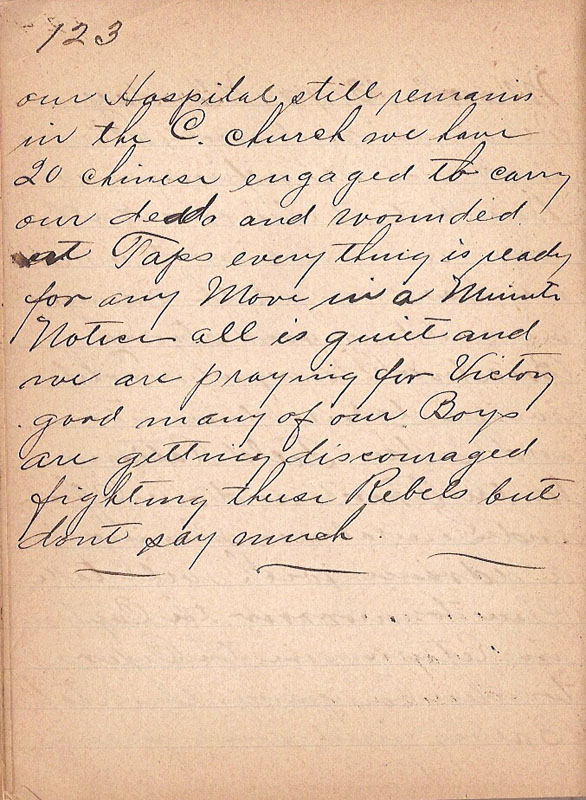 123
our Hospital still remains
in the C. church we have
20 chinese engaged to carry
our dedds and wounded
at Taps every thing is ready
for any Move in a Minute
Notice all is quiet and
we are praying for Victory
good many of our Boys
are getting discouraged
fighting these Rebels but
dont say much